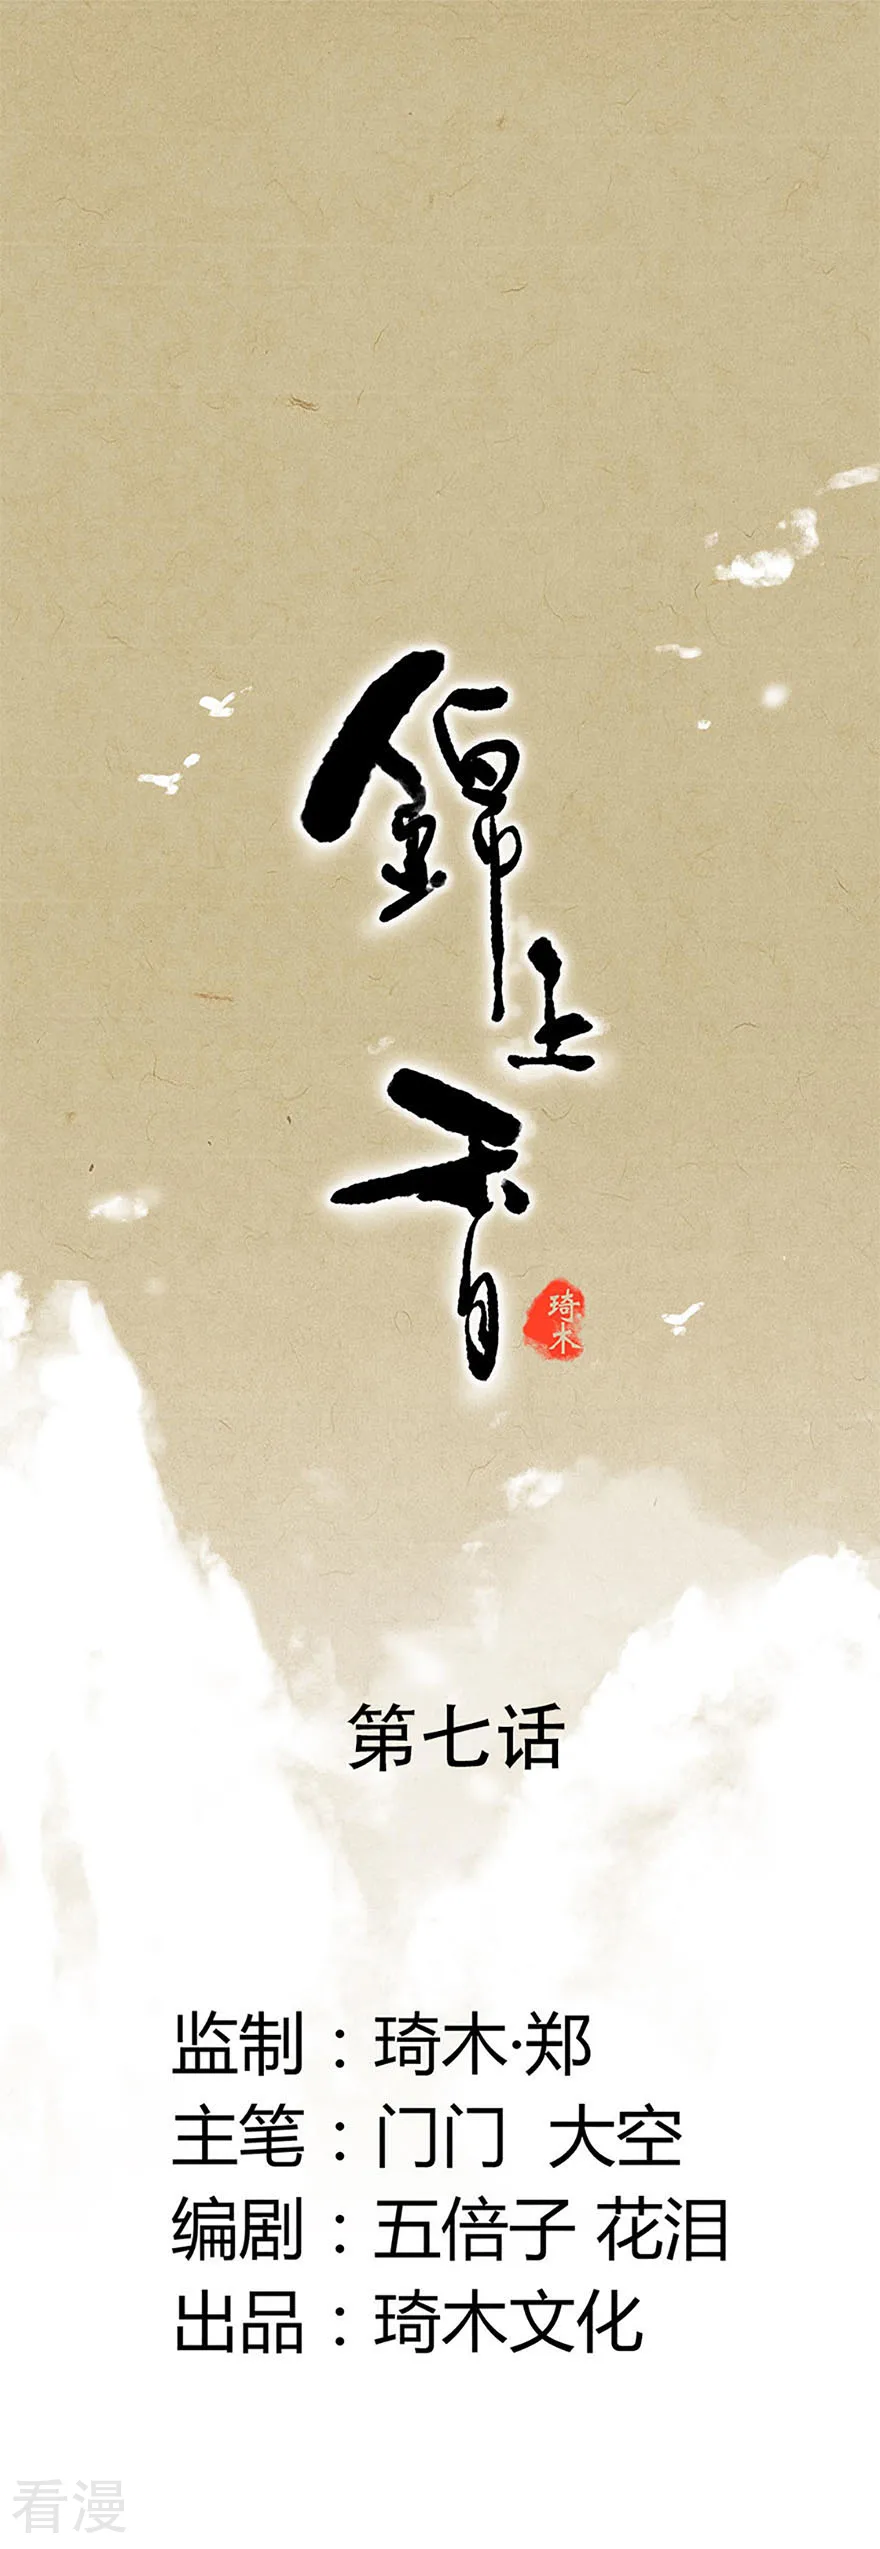 錦上香
琦木
第七话
监制：琦木·郑
主笔：门门 大空
编剧：五倍子 花泪
出品：琦木文化
看漫